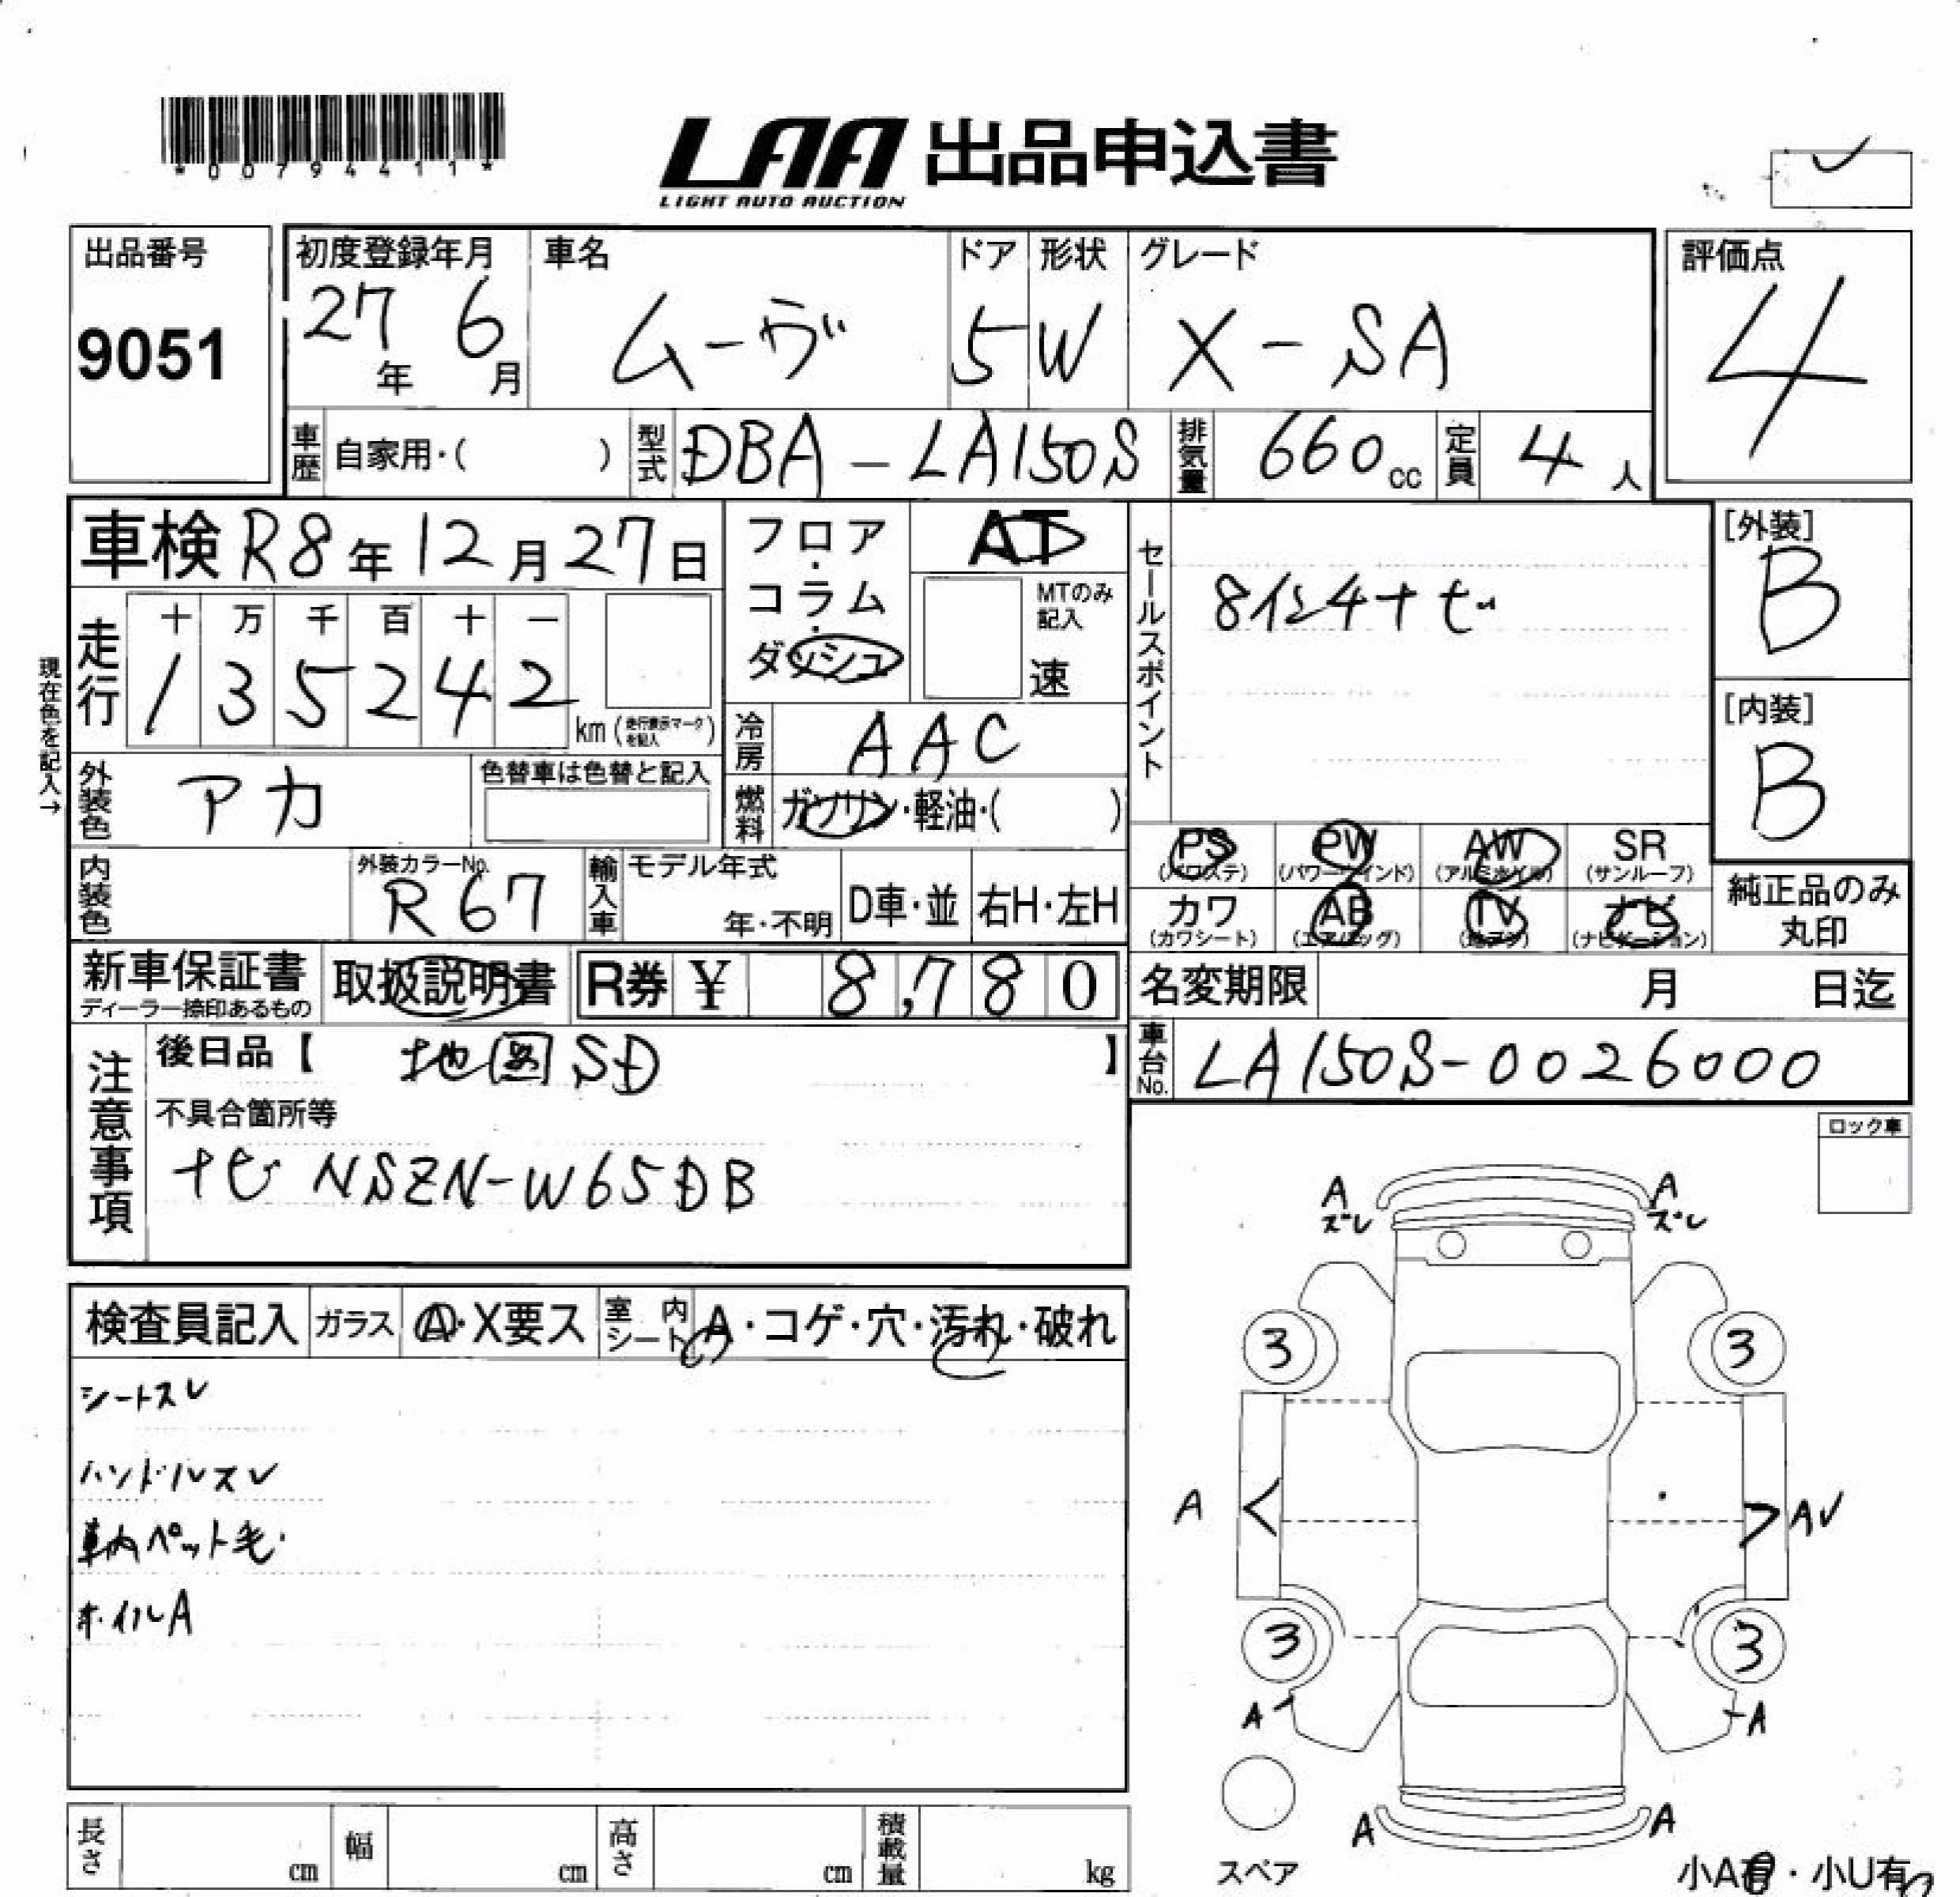 *00794411*
LAA 出品申込書
LIGHT AUTO AUCTION
出品番号
9051
初度登録年月
27年 6月
車名
ムーヴ
ドア
5
形状
W
グレード
X-SA
評価点
4
車歴 自家用・( )
型式 DBA-LA150S
排気量 660cc
定員 4人
車検 R8年12月27日
走行
十 万 千 百 十 一
1 3 5 2 4 2
km (走行表示マークを記入)
現在色を記入→
フロア・コラム・ダッシュ
AT
MTのみ記入
速
冷房 AAC
燃料 ガソリン・軽油・( )
外装色 アカ
色替車は色替と記入
内装色
外装カラーNo.
R67
輸入車
モデル年式
年・不明
D車・並
右H・左H
セールスポイント
8インチナビ
[外装]
B
[内装]
B
PS (パワステ)
PW (パワーウインド)
AW (アルミホイル)
SR (サンルーフ)
カワ (カワシート)
AB (エアバッグ)
TV (地デジ)
ナビ (ナビゲーション)
純正品のみ
丸印
新車保証書
ディーラー捺印あるもの
取扱説明書
R券 ¥ 8,780
名変期限 月 日迄
車台No. LA150S-0026000
注意事項
後日品【 地図SD 】
不具合箇所等
ナビ NSZN-W65DB
ロック車
検査員記入
ガラス A・X要ス
室内シート A・コゲ・穴・汚れ・破れ
シートスレ
ハンドルスレ
車内ペット毛
ホイルA
A
ズレ
A
ズレ
3
3
A
A
3
3
A
A
A
A
スペア
小A有・小U有
長さ cm
幅 cm
高さ cm
積載量 kg